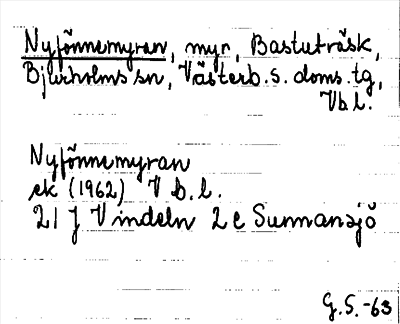 Nyfönnemyran, myr, Bastuträsk,
Bjurholms sn, Västerb. s. doms. tg,
Vb. l.
Nyfönnemyran
ek (1962) Vb. l.
21 J Vindeln 2 c Sunnansjö
G. S. -63